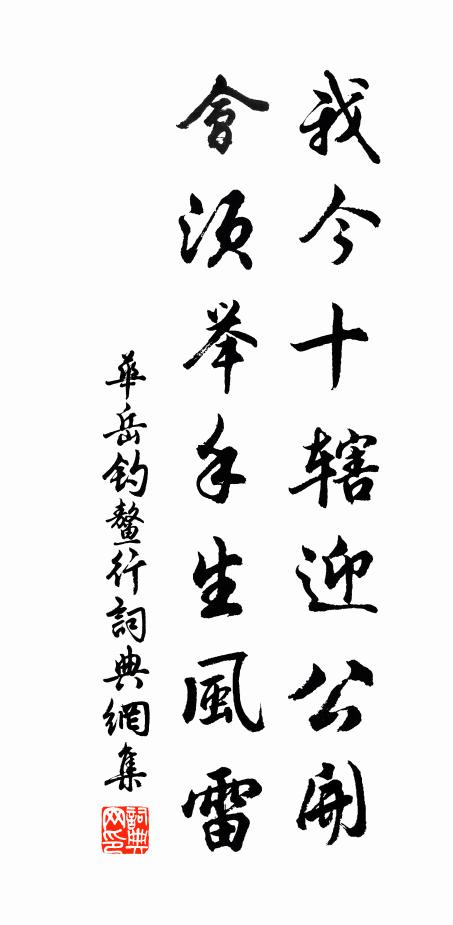 我今十辖迎公開
會須举手生風雷
華岳釣鰲行詞典網集
詞典网印